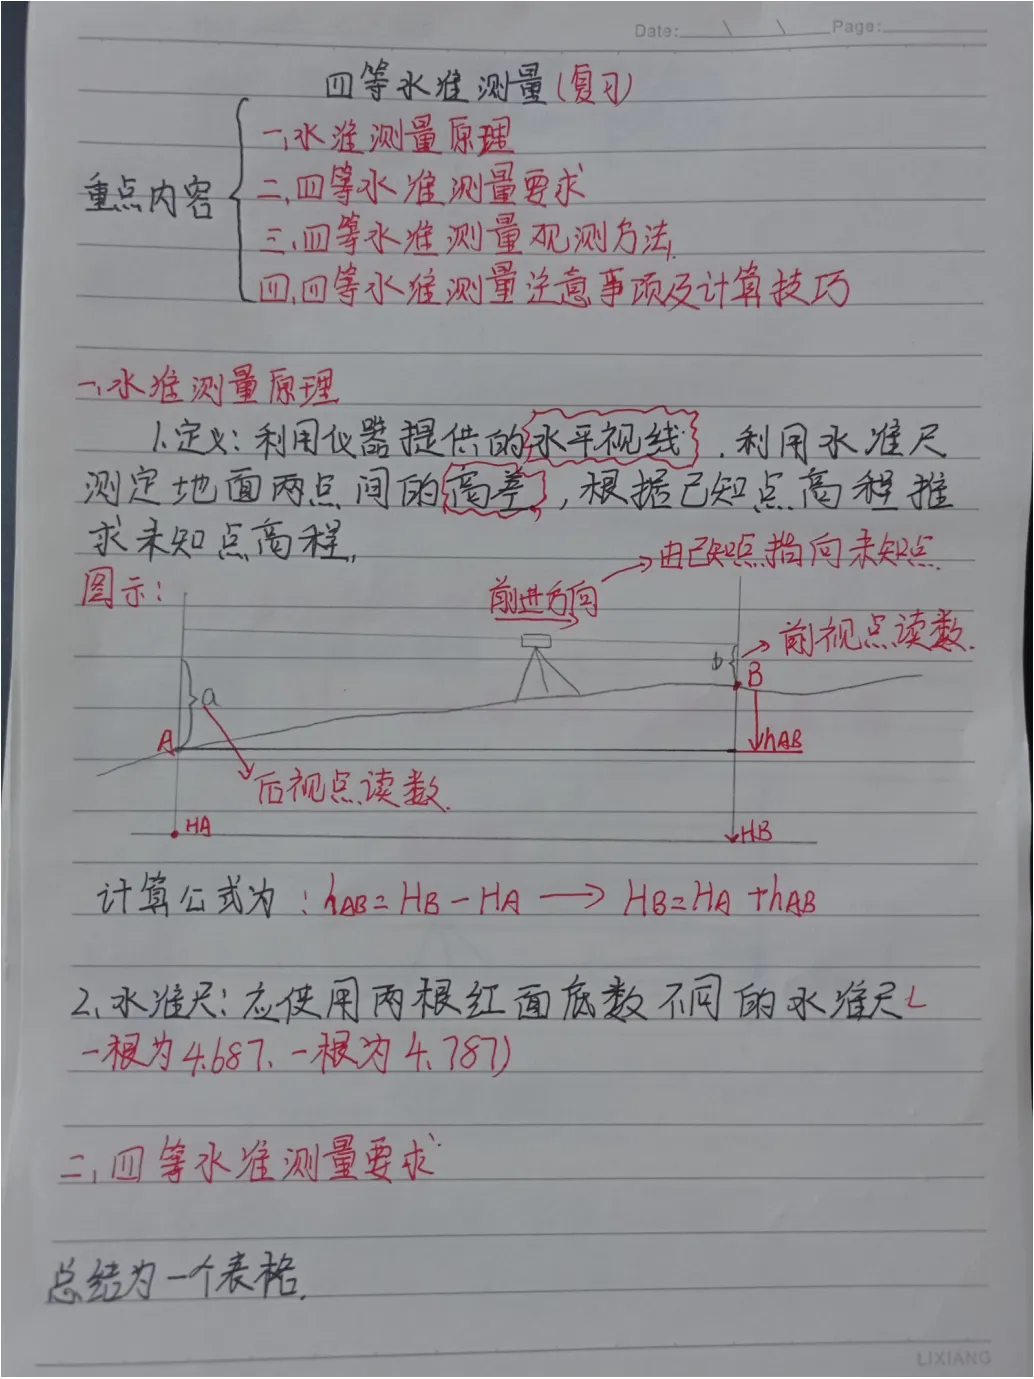 Date: \ \ Page:
四等水准测量(复习)
重点内容
一、水准测量原理
二、四等水准测量要求
三、四等水准测量观测方法.
四、四等水准测量注意事项及计算技巧
一、水准测量原理
1.定义:利用仪器提供的水平视线,利用水准尺
测定地面两点间的高差,根据已知点高程推
求未知点高程.
图示:
前进方向
由已知点指向未知点.
b
前视点读数.
B
a
A
hAB
后视点读数.
HA
HB
计算公式为:hAB=HB-HA → HB=HA+hAB
2、水准尺:应使用两根红面底数不同的水准尺(
一根为4.687、一根为4.787)
二、四等水准测量要求
总结为一个表格.
LIXIANG